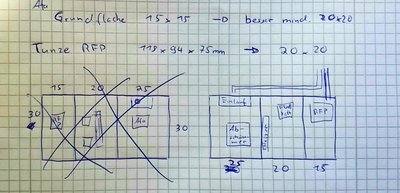 Ata
Grundfläche 15 x 15 → besser mind. 20x20
Tunze RFP 119 x 94 x 75mm → 20 x 20
15 20 25
30
Ata
30
Einlauf
Ab-
schäumer
RFP
25 20 15